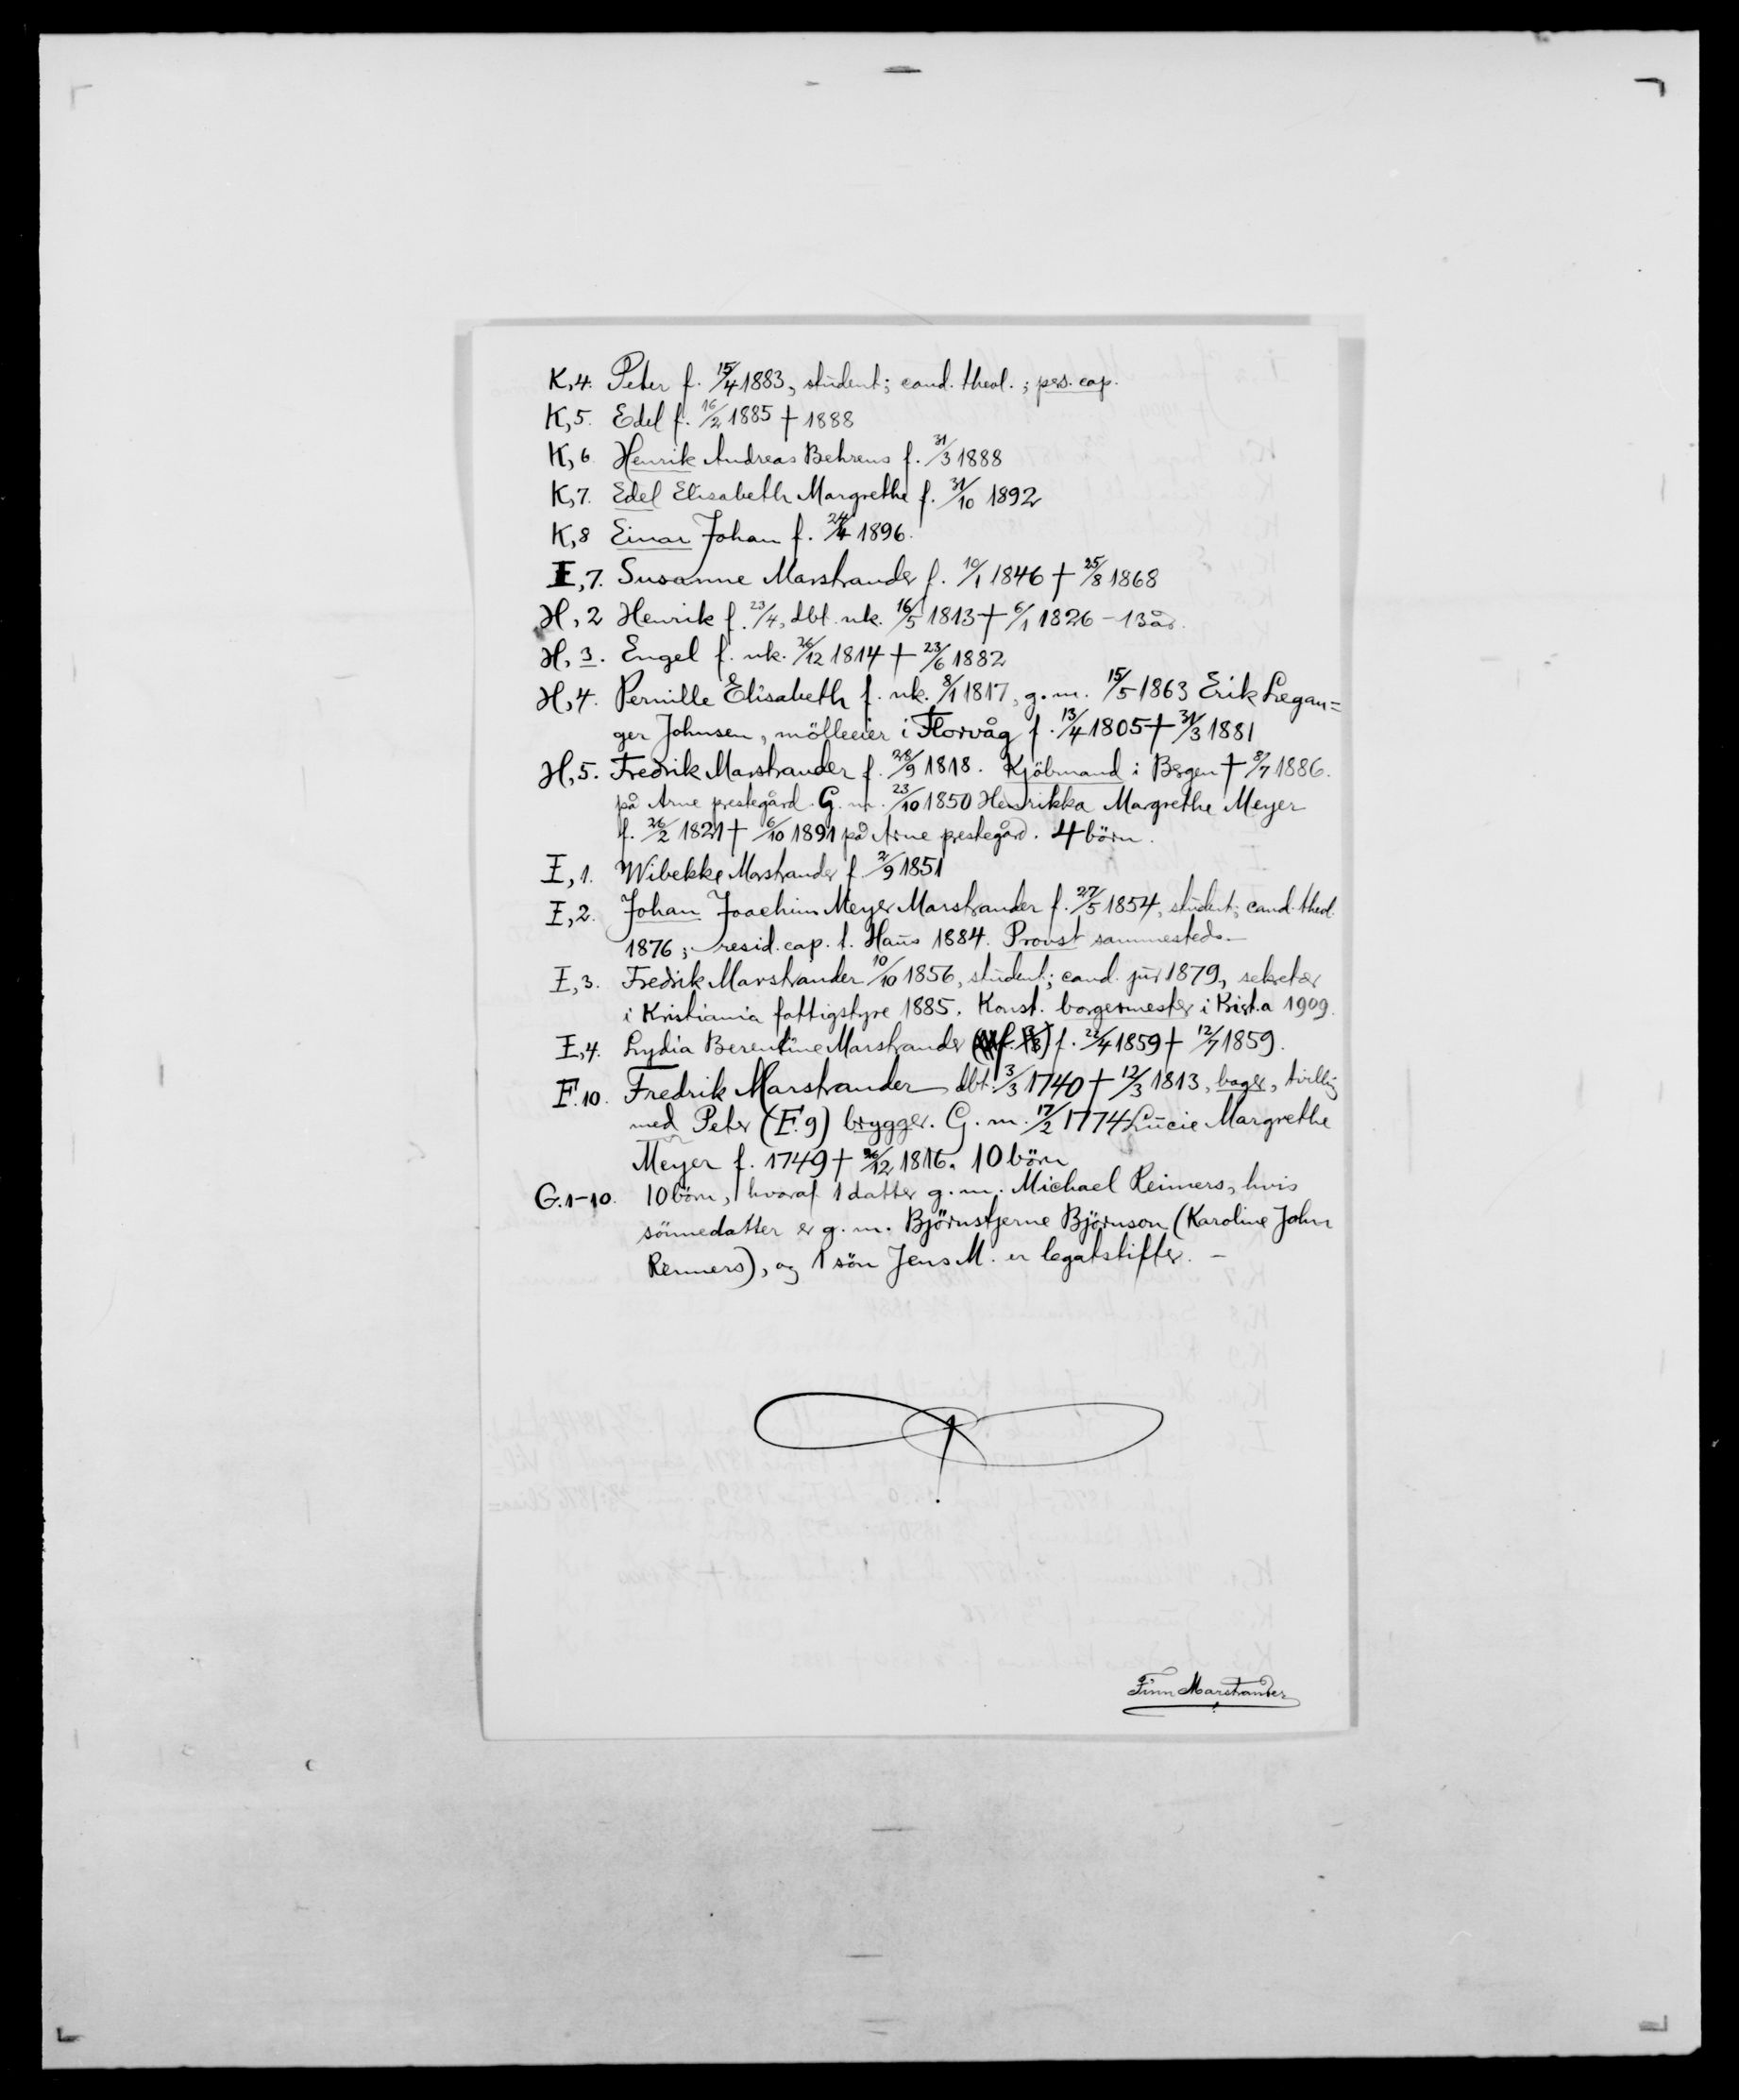 K,4. Peter f. 15/4 1883, student; cand. theol.; pers. cap.
K,5. Edel f. 16/2 1885 † 1888
K,6 Henrik Andreas Behrens f. 31/3 1888
K,7. Edel Elisabeth Margrethe f. 31/10 1892
K,8 Einar Johan f. 24/4 1896.
I,7. Susanne Marstrander f. 10/1 1846 † 25/8 1868
H,2 Henrik f. 23/4, dbt. nk. 16/5 1813 † 6/1 1826 – 13 år.
H,3. Engel f. nk. 26/12 1814 † 23/6 1882
H,4. Pernille Elisabeth f. nk. 8/1 1817, g. m. 15/5 1863 Erik Legan=
ger Johnsen, mölleeier i Florvåg f. 13/4 1805 † 31/3 1881
H,5. Fredrik Marstrander f. 28/9 1818. Kjöbmand i Bergen † 8/7 1886.
på Arne prestegård. G. m. 23/10 1850 Henrikka Margrethe Meyer
f. 26/2 1821 † 6/10 1891 på Arne prestegård. 4 börn.
I,1. Wibekke Marstrander f. 2/9 1851
I,2. Johan Joachim Meyer Marstrander f. 27/5 1854, student; cand. theol.
1876; resid. cap. t. Haus 1884. Provst sammesteds.
I,3. Fredrik Marstrander 10/10 1856, student; cand. jur 1879, sekretær
i Kristiania fattigstyre 1885. Konst. borgermester i Krist.a 1909.
I,4. Lydia Berentine Marstrander f. 22/4 1859 † 12/7 1859.
F.10. Fredrik Marstrander dbt. 3/3 1740 † 12/3 1813, bager, tvilling
med Peter (F.9) brygger. G. m. 17/2 1774 Lucie Margrethe
Meyer f. 1749 † 26/12 1816. 10 börn
G.1–10. 10 börn, hvoraf 1 datter g. m. Michael Reimers, hvis
sönnedatter er g. m. Björnstjerne Björnson (Karoline Joh.
Reimers), og 1 sön Jens M. er legatstifter. –
Finn Marstrander